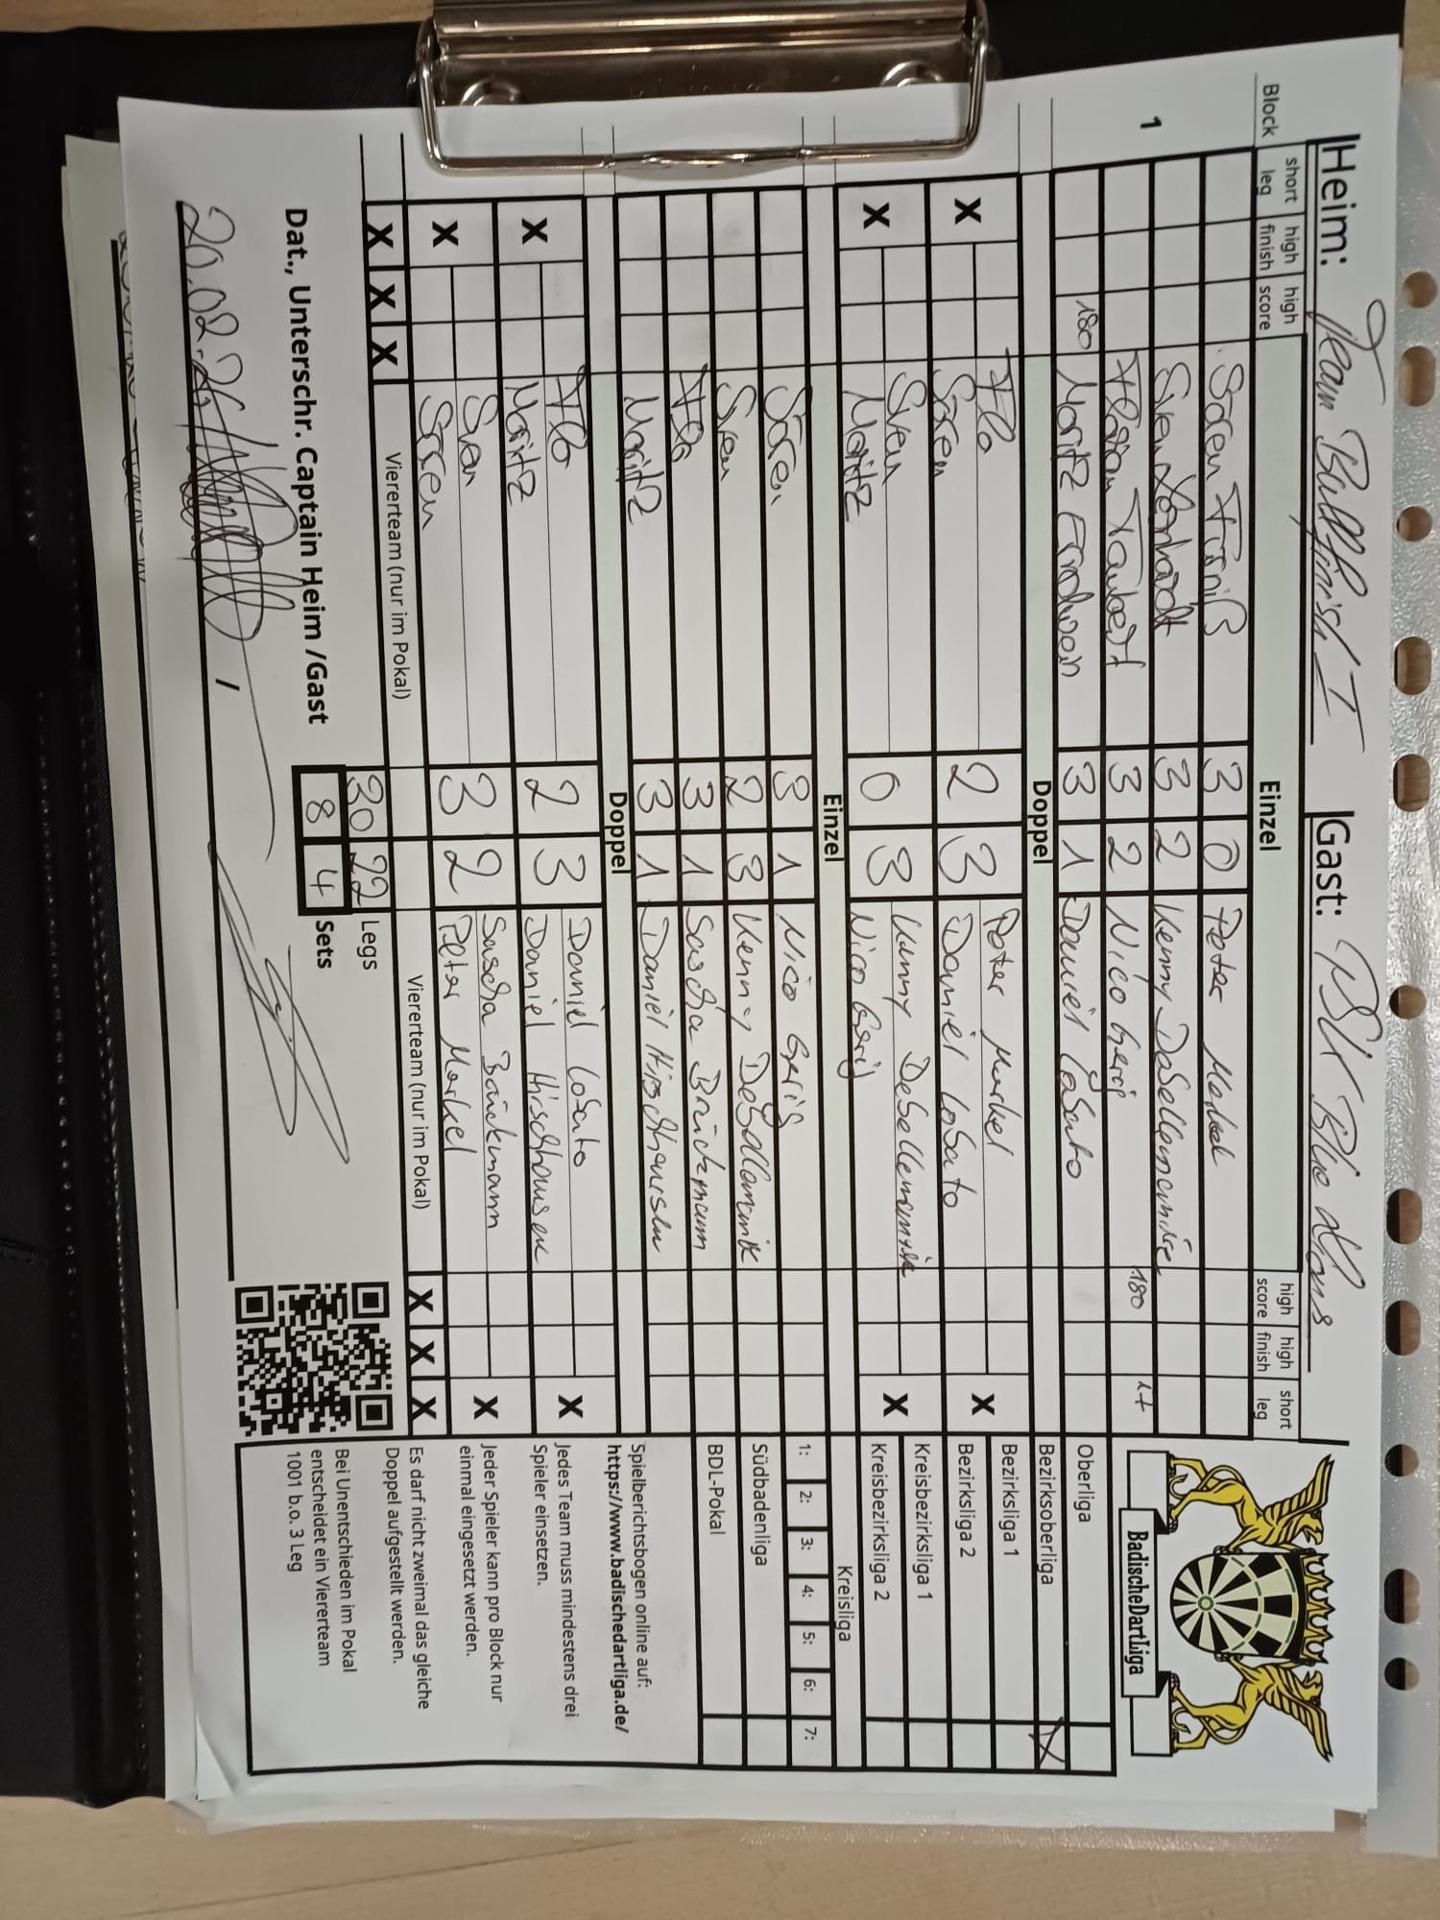 Heim: Team Bullfinish I Gast: PSV Blue Lions
Block short leg high finish high score Einzel high score high finish short leg
Sören 3 0 Peter Merkel
Sven 3 2 Kenny
1 Florian Taubert 3 2 Nico Gerig 180 17
180 Moritz 3 1 Daniel LoSato
Doppel
Flo 2 3 Peter Merkel
X Sören Daniel LoSato X
Sven 0 3 Kenny
X Moritz Nico Gerig X
Einzel
Sören 3 1 Nico Gerig
Sven 2 3 Kenny
Flo 3 1 Sascha Brückmann
Moritz 3 1 Daniel Hirschhausen
Doppel
Flo 2 3 Daniel LoSato
X Moritz Daniel Hirschhausen X
Sven 3 2 Sascha Brückmann
X Sören Peter Merkel X
Vierterteam (nur im Pokal) Vierterteam (nur im Pokal) X X X
X X X 30 22 Legs
8 4 Sets
Dat., Unterschr. Captain Heim /Gast
20.02.26 /
BadischeDartLiga
Oberliga
Bezirksoberliga X
Bezirksliga 1
Bezirksliga 2
Kreisbezirksliga 1
Kreisbezirksliga 2
Kreisliga
1: 2: 3: 4: 5: 6: 7:
Südbadenliga
BDL-Pokal
Spielberichtsbogen online auf:
https://www.badischedartliga.de/
Jedes Team muss mindestens drei
Spieler einsetzen.
Jeder Spieler kann pro Block nur
einmal eingesetzt werden.
Es darf nicht zweimal das gleiche
Doppel aufgestellt werden.
Bei Unentschieden im Pokal
entscheidet ein Viererteam
1001 b.o. 3 Leg